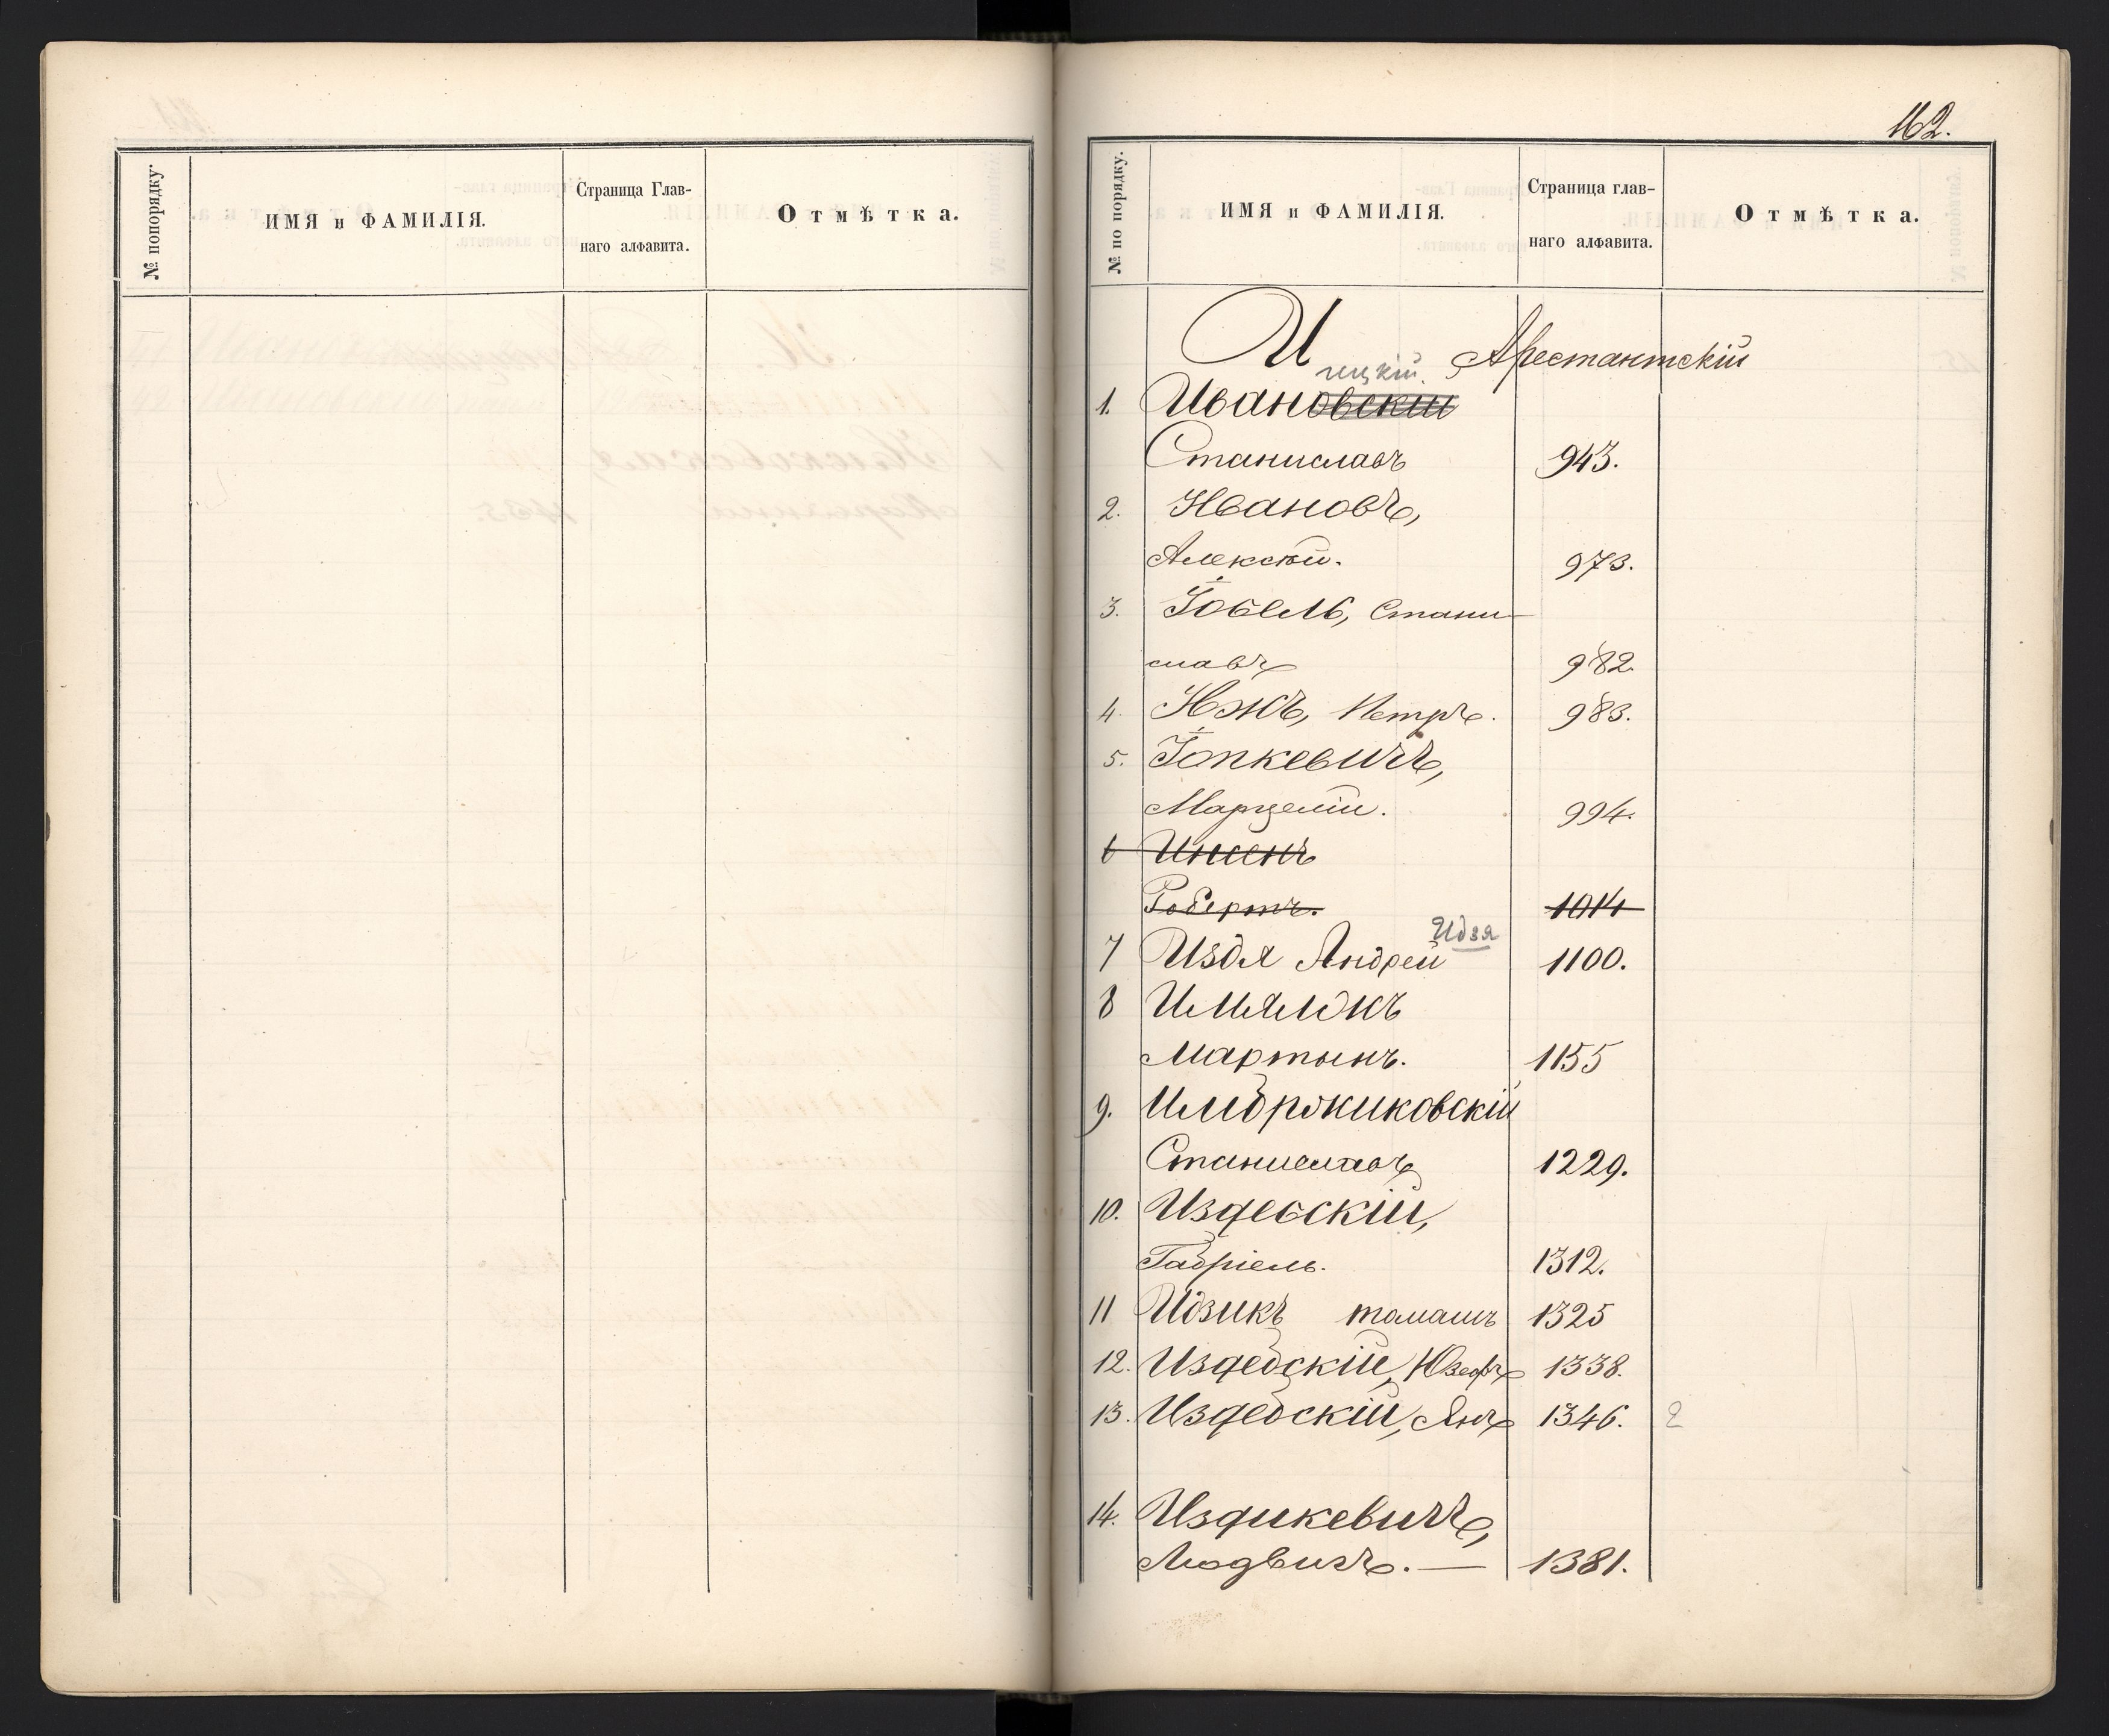 № попорядку.
ИМЯ и ФАМИЛІЯ.
Страница Глав-
наго алфавита.
Отмѣтка.
162.
№ по порядку.
ИМЯ и ФАМИЛІЯ.
Страница глав-
наго алфавита.
Отмѣтка.
И Арестантскій
гецкій.
1. Ивановскій
Станиславъ 943.
2. Ивановъ,
Алексѣй. 973.
3. Іобель, Стани-
славъ 982.
4. Ижъ, Петръ. 983.
5. Іопкевичъ,
Марцелій. 994.
6
Робертъ. 1014
Идзя
7 Издя Андрей 1100.
8 Имялокъ
Мартынъ. 1155
9.
Станиславъ 1229.
10. Издебскій,
Габріель. 1312.
11 Идзикъ томашъ 1325
12. Издебскій, Юзефъ 1338.
13. Издебскій, Янъ 1346. 2
14. Издикевичъ,
Людвигъ. — 1381.